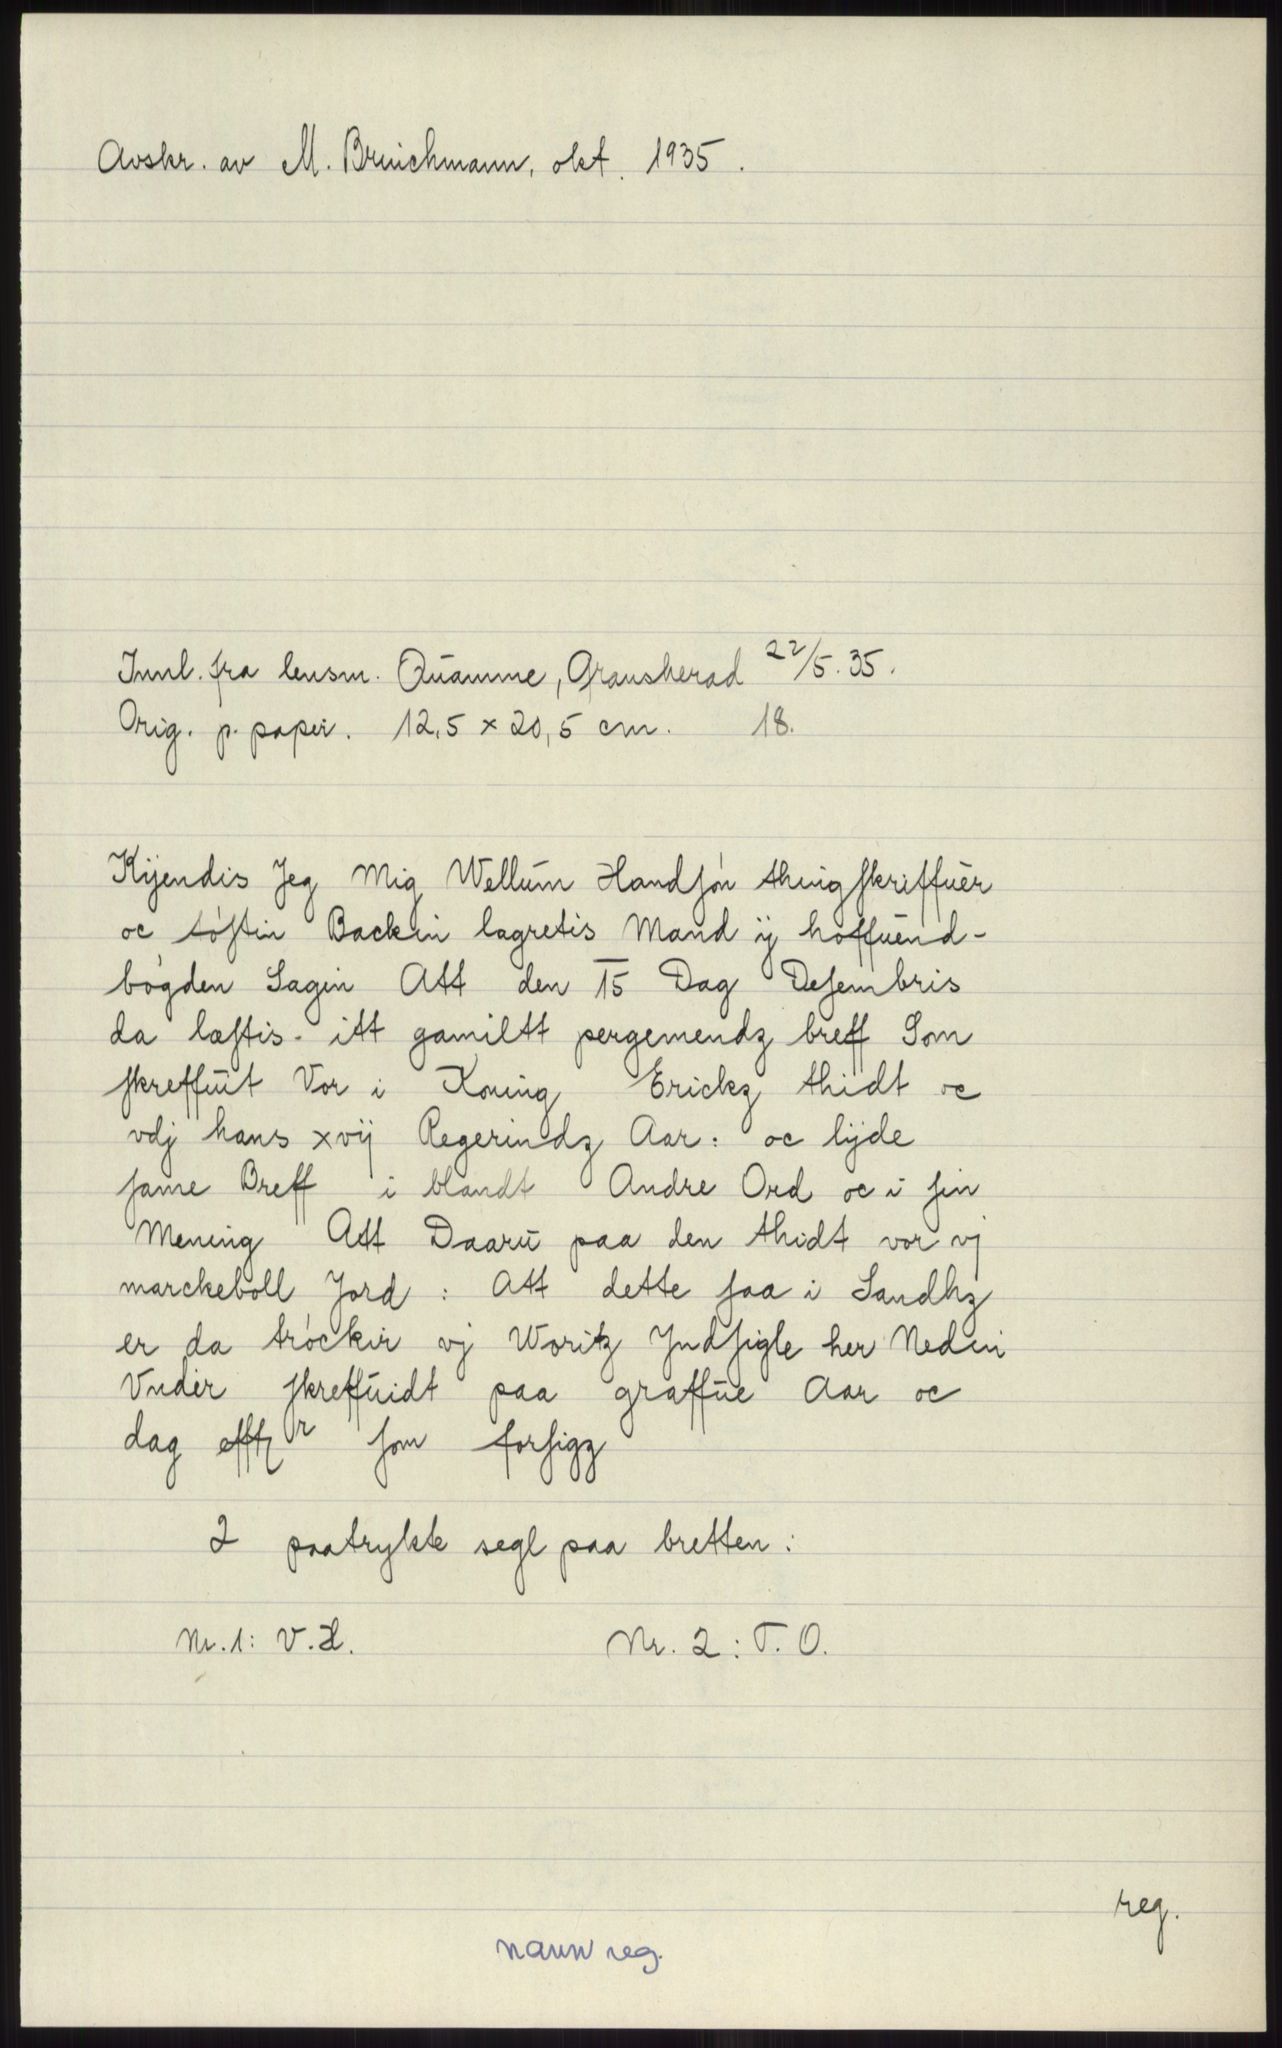 Avskr. av M. Brinchmann, okt. 1935.
Innl. fra lensm. Qŭamme, Gransherad 22/5.35.
Orig. p. papir. 12,5 x 20,5 cm. 18.
Kijendis Jeg Mig Wellŭm Handſón thingſkriffŭer
oc tóſtin Backin lagretis Mand ij hoffŭend-
bógden Sagin Att den 15 Dag Deſembris
da læſtis - itt gamiltt pergemendz breff Som
ſkreffŭit Vor i Koning Erickz thidt oc
vdj hans xvij Regerindz Aar: oc lijde
ſame Breff i blandt Andre Ord oc i ſin
Mening Att Daarŭ paa den thidt vor vj
marckeboll Jord : Att dette ſaa i Sandhz
er da tróckir vj Woritz Jndſigle her Nedin
Vnder ſkreffŭidt paa graffŭe Aar oc
dag efftr ſom forſigz
2 paatrykte segl paa bretten:
Nr. 1: V.H. Nr. 2: T.O.
reg.
navn reg.